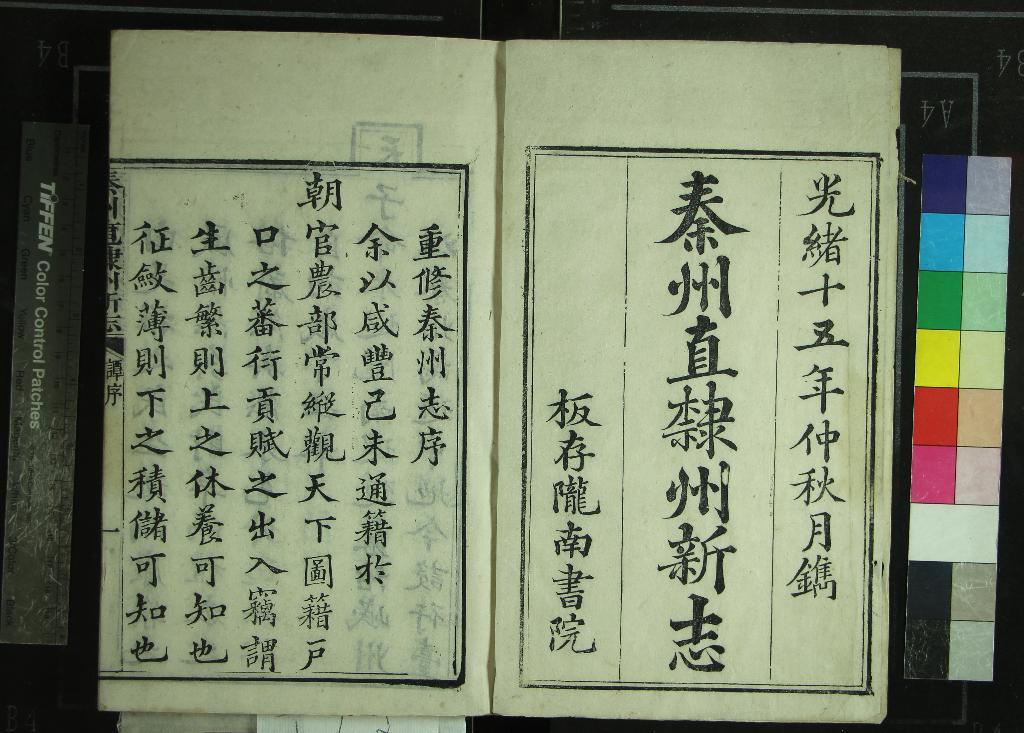 光緒十五年仲秋月鐫
秦州直隸州新志
板存隴南書院
重修秦州志序
余以咸豐己未通籍於
朝官農部常縱觀天下圖籍戶
口之蕃衍貢賦之出入竊謂
生齒繁則上之休養可知也
征斂薄則下之積儲可知也
秦州直隸州新志
譚序
一
TIFFEN Color Control Patches
Blue
Cyan
Green
Yellow
Red
Black
B4
B4
A4
B4